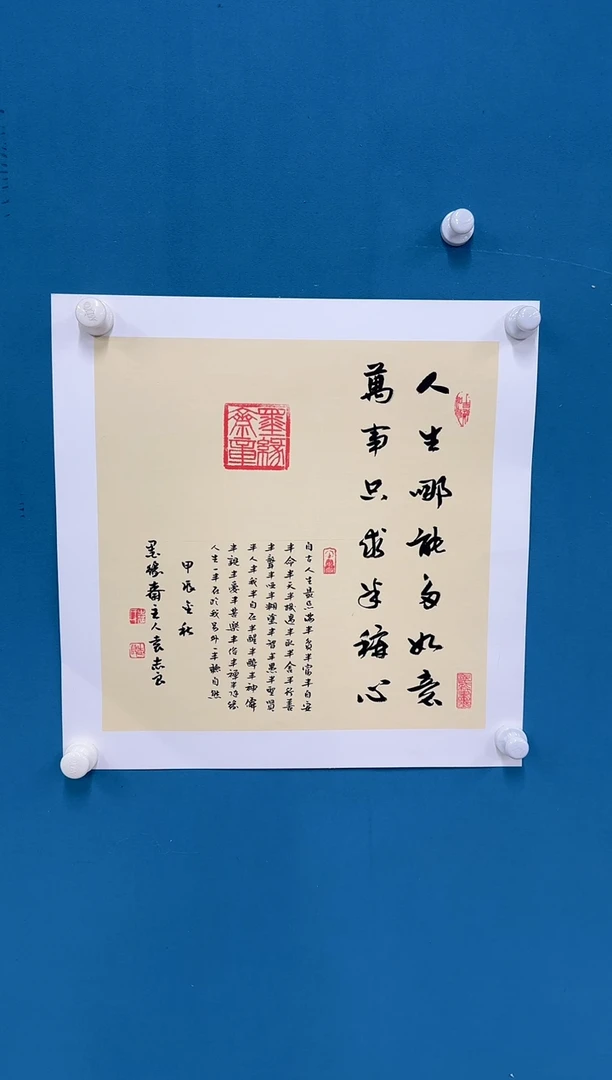 人生哪能多如意
萬事只求半稱心
自古人生最忌滿半貧半富半自安
半命半天半機遇半取半舍半行善
半聾半啞半糊塗半智半愚半聖賢
半人半我半自在半醒半醉半神僊
半親半愛半苦樂半俗半禪半隨緣
人生一半在於我另外一半聽自然
墨緣
齋章
甲辰金秋
墨緣齋主人袁志良